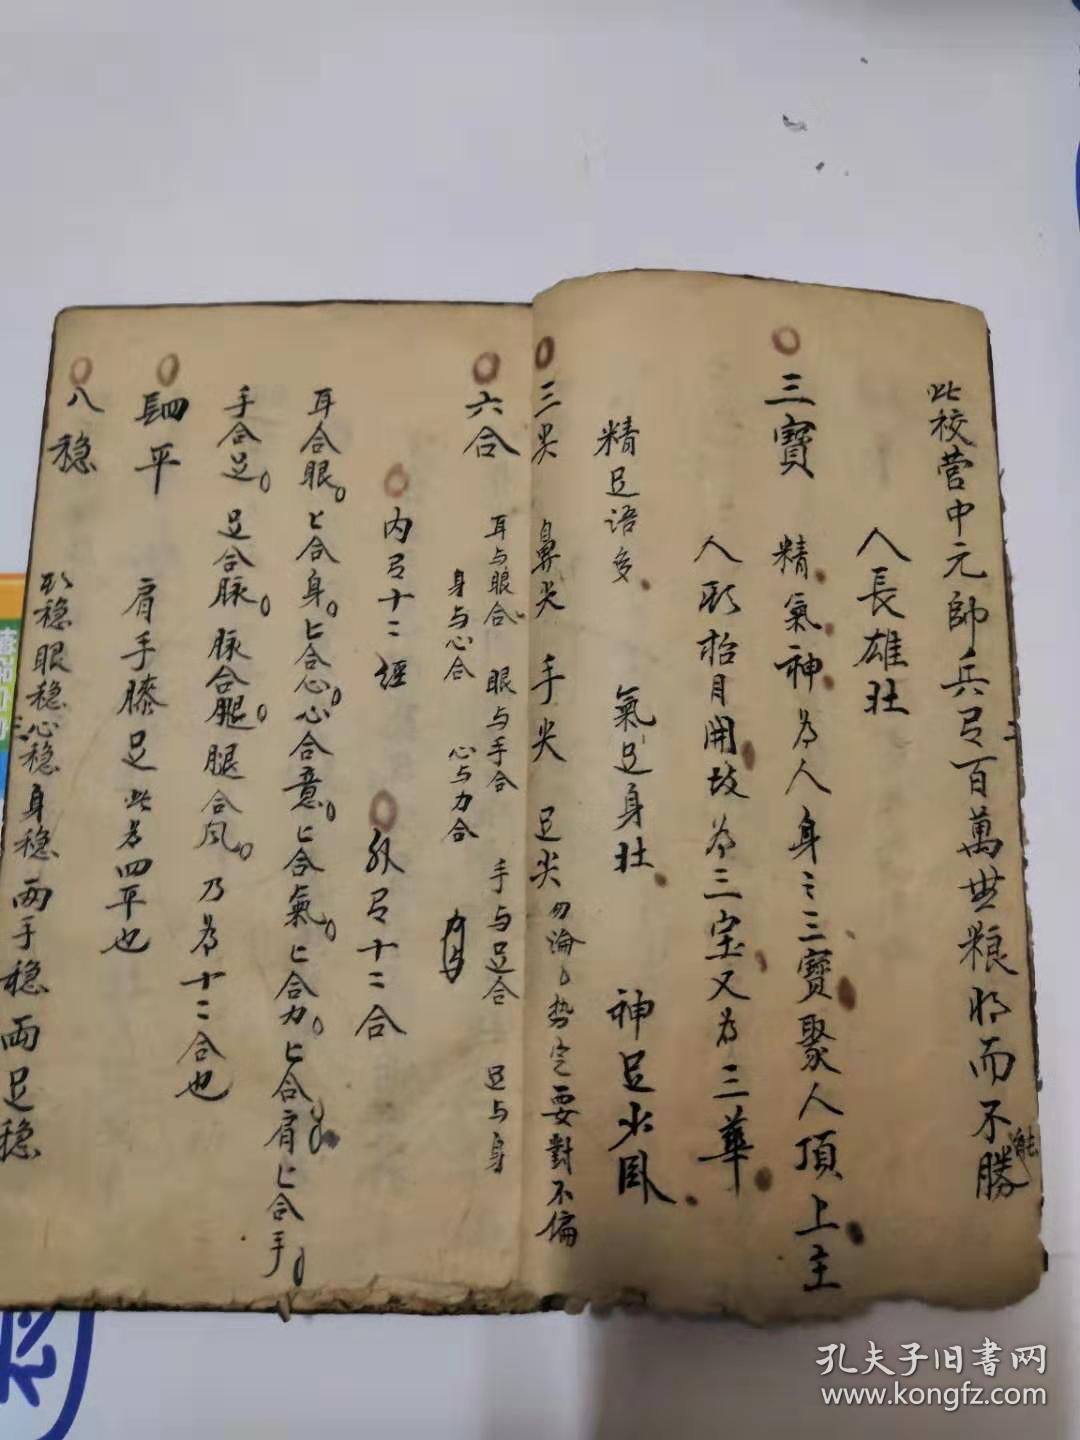 此校营中元帥兵弓百萬無粮將而不勝
人長雄壯
三寶 精氣神為人身之三寶聚人頂上主
人形招月開故為三宝又為三華
精足语多 氣足身壯 神足少臥
三尖 鼻尖 手尖 足尖 勿淪勢定要對不偏
六合 耳与眼合 眼与手合 手与足合 足与身
身与心合 心与力合
内弓十二經 外弓十二合
耳合眼 ヒ合身 ヒ合心 心合意 ヒ合氣 ヒ合力 ヒ合肩 ヒ合手
手合足 足合脉 脉合腿 腿合风 乃為十二合也
四平 肩手膝足此為四平也
八稳 形稳眼稳心稳身稳两手稳両足稳
孔夫子旧書网
www.kongfz.com